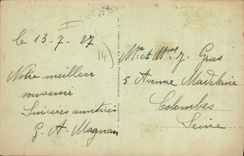 I
le 13-7-27
14
Notre meilleur
souvenir
Sincères amitiés
G. A. Magnan
Mr et Mme J. Gras
5 Avenue Madeleine
Colombes
Seine